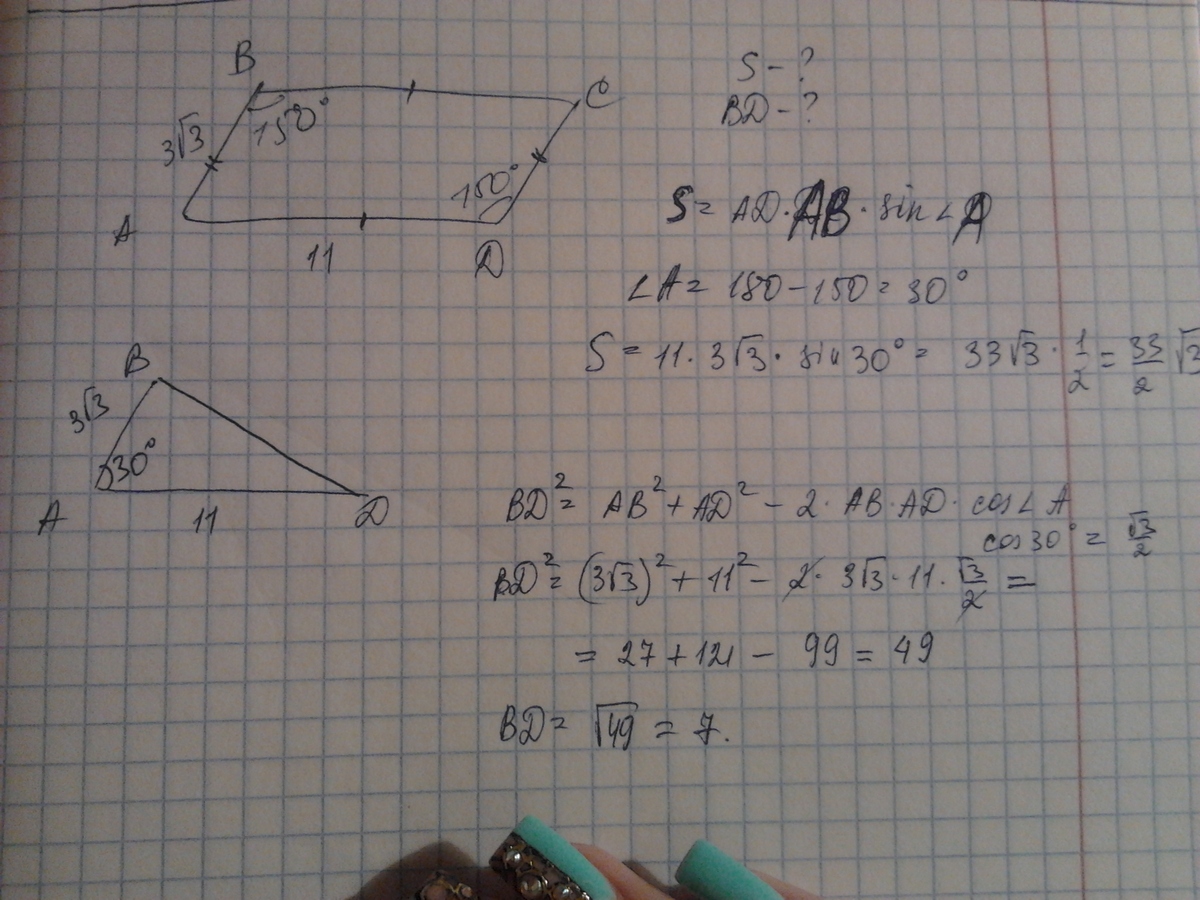 B
C
3√3
150°
150°
A
11
D
S - ?
BD - ?
S = AD · AB · sin ∠A
∠A = 180 - 150 = 30°
S = 11 · 3√3 · sin 30° = 33√3 · 1/2 = 33/2 √3
B
3√3
30°
A
11
D
BD² = AB² + AD² - 2 · AB · AD · cos ∠A
cos 30° = √3/2
BD² = (3√3)² + 11² - 2 · 3√3 · 11 · √3/2 =
= 27 + 121 - 99 = 49
BD = √49 = 7.